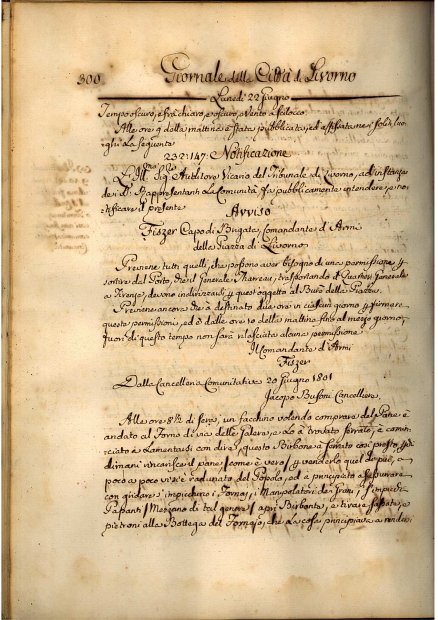 300
Giornale della Città di Livorno
Lunedì 22 Giugno
Tempo oscuro, e frà chiaro, e oscuro, e Vento a scilocco
Alle ore 9 della mattina è stata pubblicata, ed affissata nei soliti luo
ghi la seguente
232:147: Notificazione
L'Ill.mo Sig.re Auditore Vicario del Tribunale di Livorno, ad instanza
dei di Rappresentanti la Comunità, fa pubblicamente intendere, e no
tificare il presente
Avviso
Fiszer Capo di Brigata, Comandante d'Armi
della Piazza di Livorno
Previene tutti quelli, che possono aver bisogno di una permissione, p
sortire dal Porto, che il Generale Tharreau, trasportando il Quartier Generale
a Firenze, devono indirizzarsi p quest'oggetto al Burò della Piazza.
Previene ancora che à destinato due ore in ciascun giorno p firmare
queste permissioni, ed è dalle ore 10 della mattina fino al mezzo giorno,
fuori di questo tempo non sarà rilasciata alcuna permissione.
Il Comandante d'Armi
Fiszer
Dalla Cancelleria Comunitativa 20 Giugno 1801
Jacopo Busoni Cancelliere
Alle ore 8½ di sera, un facchino volendo comprare del Pane è
andato al Forno di via delle Galere, e lo à trovato serrato, è comin
ciato à lamentarsi con dire, questo Birbone à serrato così presto, p
dimani rincarisce il pane, come è vero, p venderlo quel di più, a
poco a poco vi si è radunato del Popolo, ed a principiato a susurrare
con gridare s'impicchino i Fornai, i Manipolatori dei Grani,
Gapanti, Mezzano di tal genere, apri Birbante, e tirare sassate, e
pietroni alla Bottega del Fornajo, che la cosa principiava a rendersi